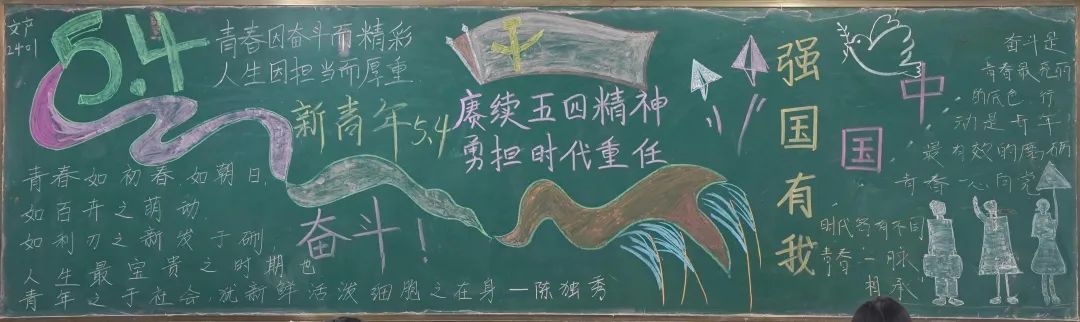 文产
2401
5.4
青春因奋斗而精彩
人生因担当而厚重
新青年5.4
赓续五四精神
勇担时代重任
强国有我
中国
奋斗是
青春最亮丽
的底色,行
动是青年
最有效的磨砺
青春心向党
青春如初春,如朝日,
如百卉之萌动,
如利刃之新发于硎,
人生最宝贵之时期也
青年之于社会,犹新鲜活泼细胞之在身—陈独秀
奋斗!
时代各有不同
青春一脉
相承